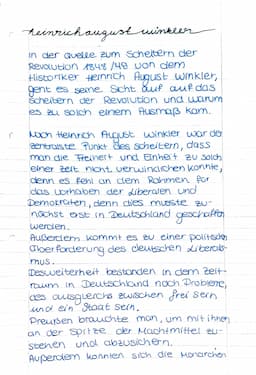 heinrich august winkler
In der Quelle zum Scheitern der
Revolution 1848/49 von dem
Historiker Heinrich August Winkler,
geht es seine Sicht auf auf das
Scheitern der Revolution und warum
es zu solch einem Ausmaß kam.
Nach Heinrich August Winkler war der
zentralste Punkt des Scheitern, dass
man die Freiheit und Einheit zu solch
einer Zeit nicht verwirklichen konnte,
denn es fehl an dem Rahmen für
das Vorhaben der Liberalen und
Demokraten, denn dies musste zu-
nächst erst in Deutschland geschaffen
werden.
Außerdem kommt es zu einer politischen
Überforderung des deutschen Liberalis-
mus.
Desweiterheit bestanden in dem Zeit-
raum in Deutschland noch Probleme,
des ausgleichs zwischen frei sein
und ein Staat sein.
Preußen brauchte man, um mit ihnen
an der Spitze der Machtmittel zu-
stehen und abzusichern.
Außerdem konnten sich die Monarchen